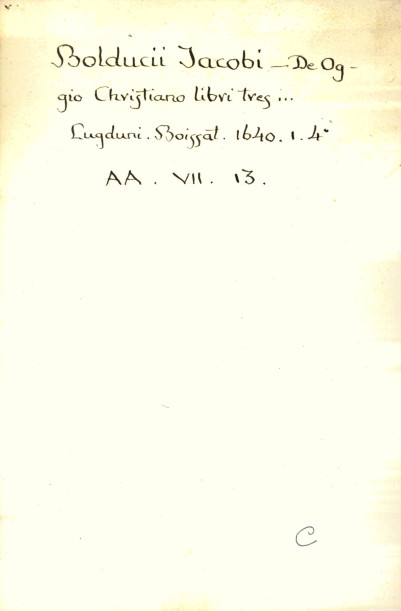 Bolducii Jacobi — De Og-
gio Christiano libri tres ...
Lugduni. Boissat. 1640. 1. 4°
AA. VII. 13.
C